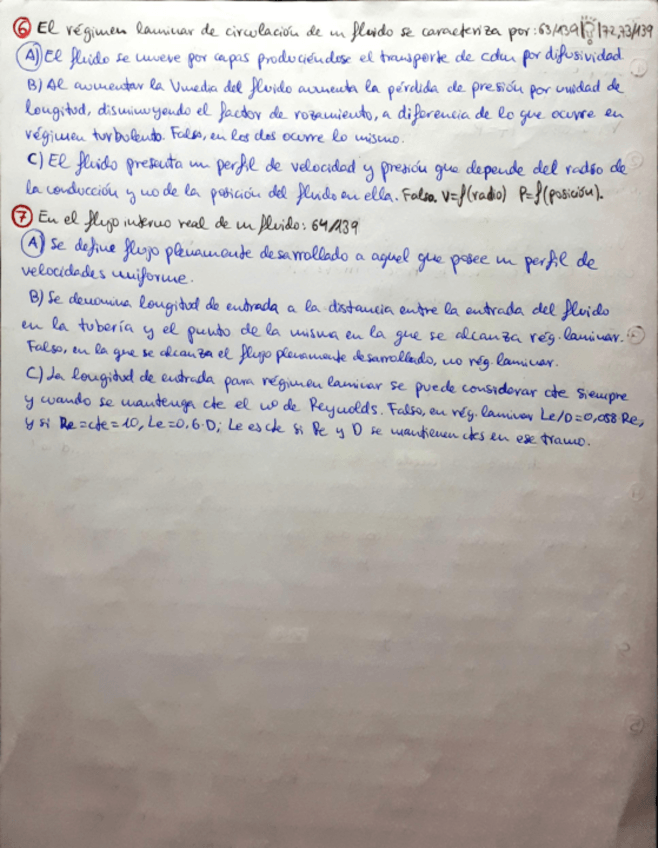 6 El régimen laminar de circulación de un fluido se caracteriza por: 63/139 172,73/139
A) El fluido se mueve por capas produciéndose el transporte de cdm por difusividad.
B) Al aumentar la Vmedia del fluido aumenta la pérdida de presión por unidad de
longitud, disminuyendo el factor de rozamiento, a diferencia de lo que ocurre en
régimen turbolento. Falso, en los dos ocurre lo mismo.
C) El fluido presenta un perfil de velocidad y presión que depende del radio de
la conducción y no de la posición del fluido en ella. Falsa. V=f(radio) P=f(posición).
7 En el flujo interno real de un fluido: 64/139
A) Se define flujo plenamente desarrollado a aquel que posee un perfil de
velocidades uniforme.
B) Se denomina longitud de entrada a la distancia entre la entrada del fluido
en la tubería y el punto de la misma en la que se alcanza rég. laminar.
Falso, en la que se alcanza el flujo plenamente desarrollado, no rég. laminar.
C) La longitud de entrada para régimen laminar se puede considerar cte siempre
y cuando se mantenga cte el nº de Reynolds. Falso, en rég. laminar Le/D=0,058 Re,
y si Re=cte=10, Le=0,6·D; Le es cte si Re y D se mantienen ctes en ese tramo.